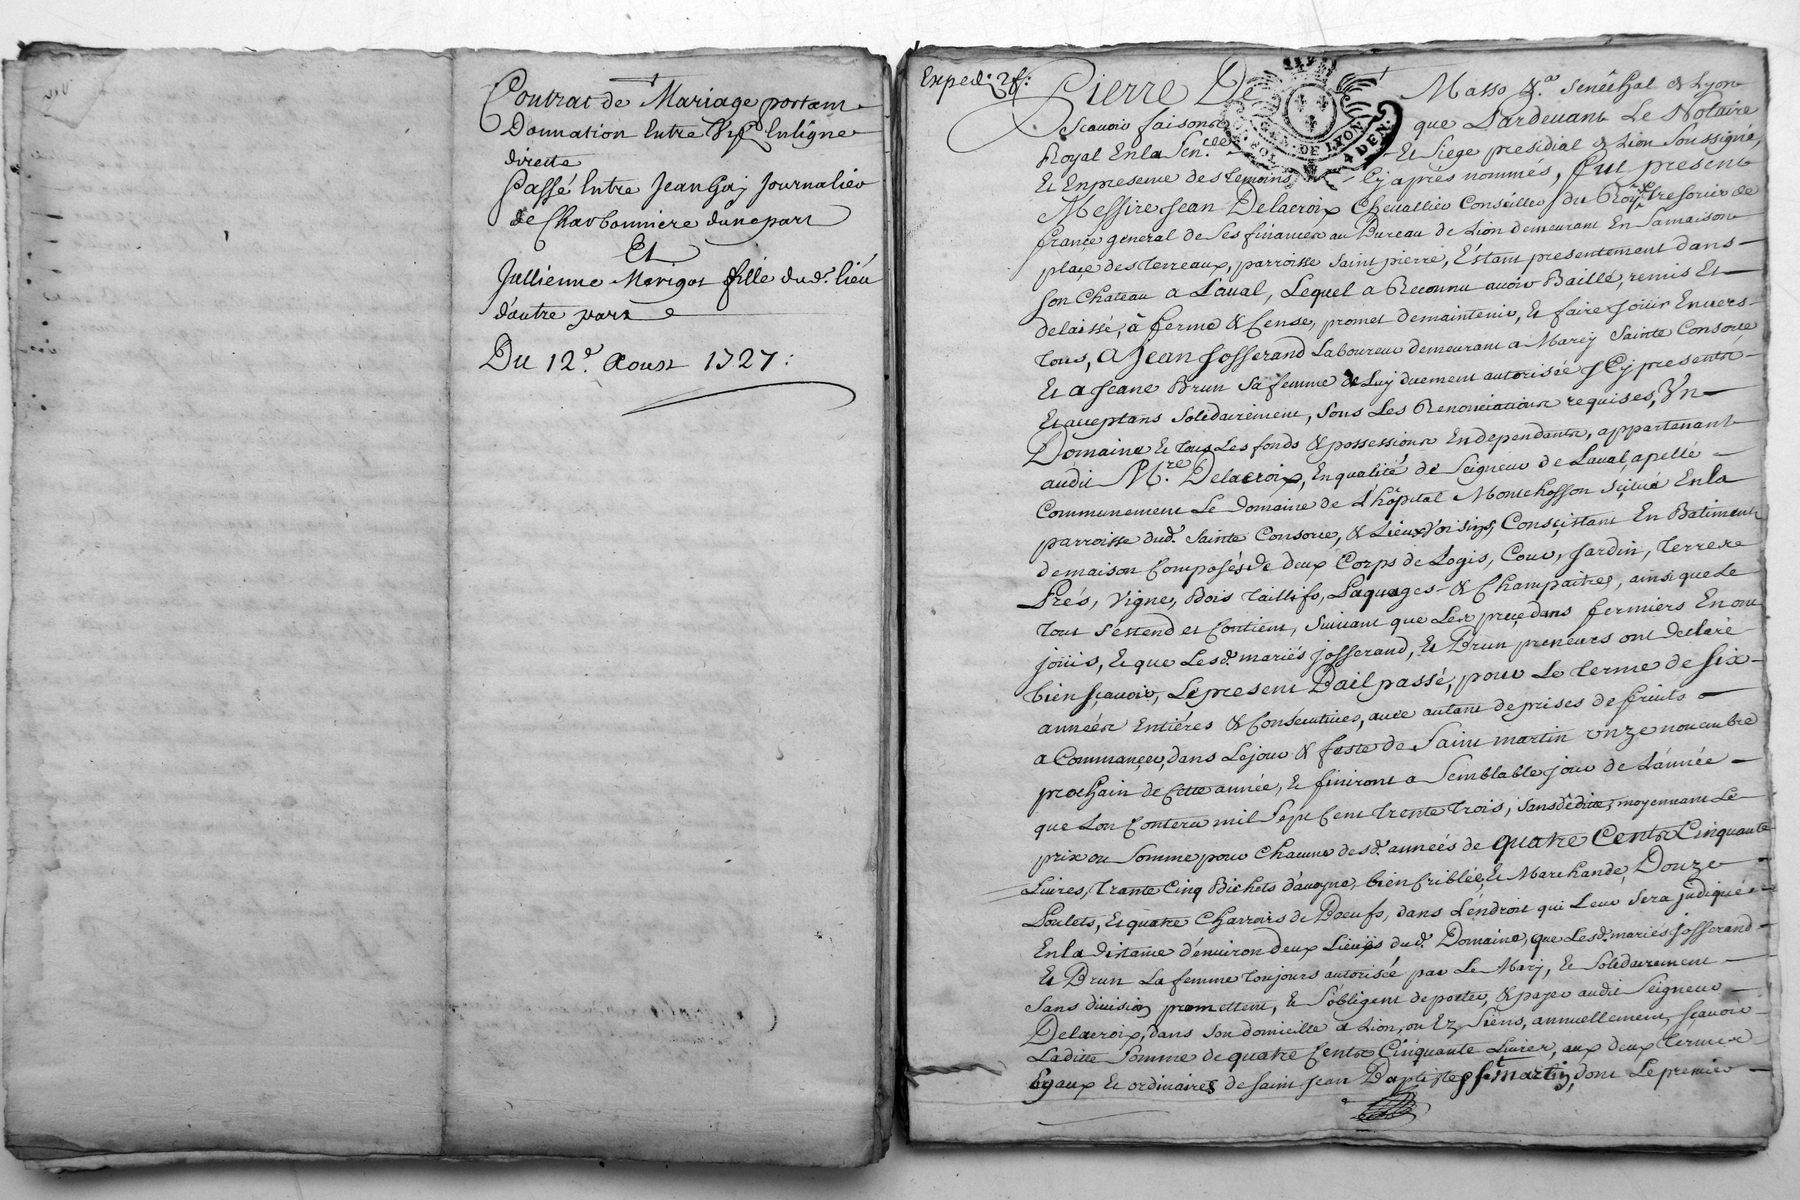 Contrat de Mariage portant
Donnation Entre Vifs En ligne
directe
Passé Entre Jean Gaj Journalier
de Charbonniere d'une part
Et
Jullienne Marigot fille dud. lieu
d'autre part
Du 12e. Aoust 1727:
Exped. 2 f:
Pierre De Masso &a. Senêchal de Lyon
Scavoir faisons que Pardevant Le Notaire
Royal En la Sen.cée Et Siege presidial de Lion Soussigné,
Et En presence des temoins Cy aprés nommés, fut present
GEN. DE LYON
4 DEN.
Messire Jean Delacroix Chevallier Conseiller du Roy, tresorier de
france general de Ses finances au Bureau de Lion demeurant En Sa maison
place des Terreaux, parroisse Saint pierre, Estant presentement dans
son Chateau a Laval, Lequel a Reconnu avoir Baillé, remis Et
delaissé, à ferme & Cense, promet de maintenir, & faire joüir Envers
tous, a Jean Josserand Laboureur demeurant a Marcy Sainte Consorce
Et a Jeane Brun Sa femme de Luy duement autorisée Cy presents
Et acceptans Solidairement, Sous Les Renonciations requises, Un
Domaine & tous Les fonds & possessions En dependants, appartenant
audit M.re Delacroix, En qualité de Seigneur de Laval, apellé
Communement Le Domaine de L'hôpital Montchosson Scitué En la
parroisse dud. Sainte Consorce, & Lieux Voisins, Consistant En Batiments
de maison Composés de deux Corps de Logis, Cour, Jardin, Terres
Prés, Vigne, Bois taillifs, Paquages & Champaitres, ainsi que Le
tout s'estend et Contient, Suivant que Les precedans fermiers En ont
joüis, & que Lesd. mariés Josserand, & Brun preneurs ont declaré
bien sçavoir, Le present Bail passé, pour Le terme de Six
années Entiéres & Consécutives, avec autant de prises de fruits
a Commancer, dans Le jour & feste de Saint martin onze novembre
prochain de Cette année, & finiront a Semblable jour de L'année
que Lon Contera mil Sept Cent trente trois, Sans dedite, moyennant Le
prix ou Somme pour Chacune desd. années de quatre Cents Cinquante
Livres, trante Cinq Bichets d'avoyne, bien Criblée, & Marchande, Douze
Poulets, Et quatre Charrois de Boeufs, dans L'endroit qui Leur Sera judiqué
En la distance d'environ deux Lieuës dud. Domaine, que Lesd. mariés Josserand
Et Brun La femme toujours autorisée par Le Mary, & Solidairement
Sans division promettent, & S'obligent de porter, & payer audit Seigneur
Delacroix, dans Son domicille a Lion, ou Ez Siens, annuellement, sçavoir
Laditte Somme de quatre Cents Cinquante Livres, aux deux Termes
Egaux & ordinaires de Saint Jean Baptiste & St. martin, dont Le premier